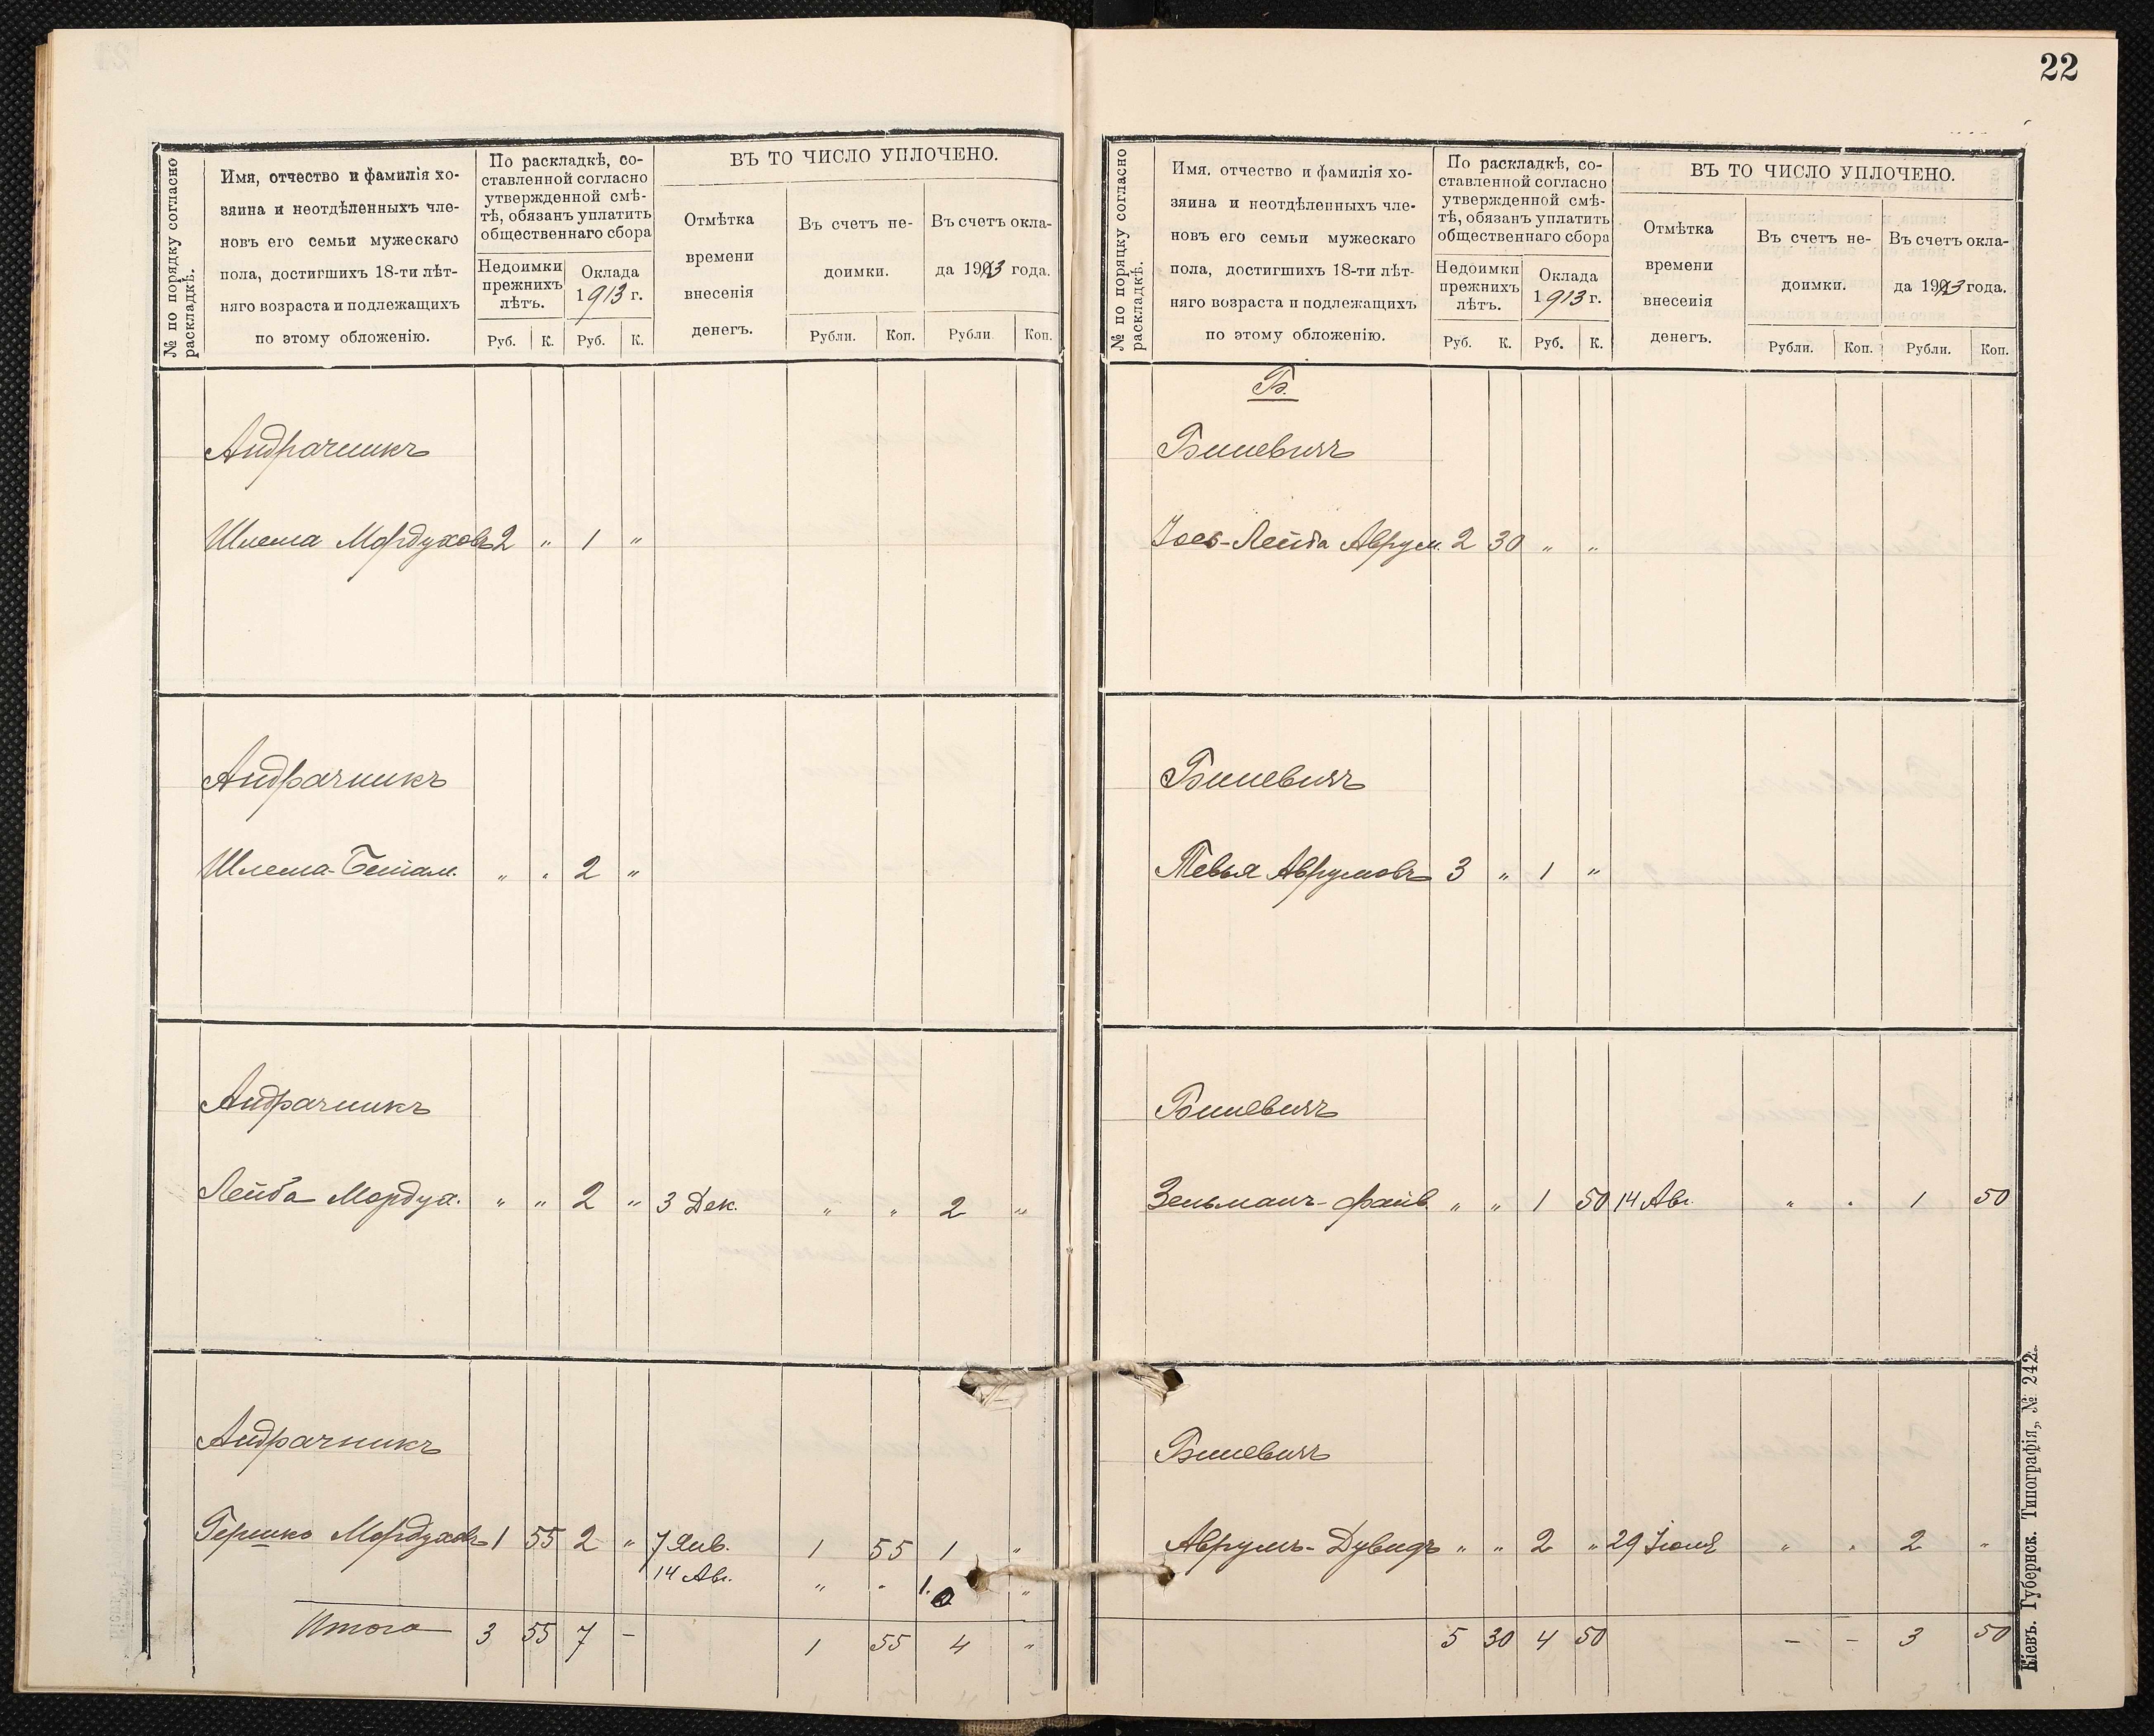 22
№ по порядку согласно раскладкѣ.
Имя, отчество и фамилія хо-
зяина и неотдѣленныхъ чле-
новъ его семьи мужескаго
пола, достигшихъ 18-ти лѣт-
няго возраста и подлежащихъ
по этому обложенію.
По раскладкѣ, со-
ставленной согласно
утвержденной смѣ-
тѣ, обязанъ уплатить
общественнаго сбора
Недоимки
прежнихъ
лѣтъ.
Оклада
1913 г.
Руб. К. Руб. К.
ВЪ ТО ЧИСЛО УПЛОЧЕНО.
Отмѣтка
времени
внесенія
денегъ.
Въ счетъ не-
доимки.
Рубли. Коп.
Въ счетъ окла-
да 1913 года.
Рубли Коп.
Андрачникъ
Шлема Мордуховъ 2 " 1 "
Андрачникъ
Шлема- " " 2 "
Андрачникъ
Лейба Мордух. " " 2 " 3 Дек. " " 2 "
Андрачникъ
Гершко Мордуховъ 1 55 2 " 7 Янв. 1 55 1 "
14 Авг. " " 1. "
Итого 3 55 7 — 1 55 4 "
№ по порядку согласно раскладкѣ.
Имя, отчество и фамилія хо-
зяина и неотдѣленныхъ чле-
новъ его семьи мужескаго
пола, достигшихъ 18-ти лѣт-
няго возраста и подлежащихъ
по этому обложенію.
По раскладкѣ, со-
ставленной согласно
утвержденной смѣ-
тѣ, обязанъ уплатить
общественнаго сбора
Недоимки
прежнихъ
лѣтъ.
Оклада
1913 г.
Руб. К. Руб. К.
ВЪ ТО ЧИСЛО УПЛОЧЕНО.
Отмѣтка
времени
внесенія
денегъ.
Въ счетъ не-
доимки.
Рубли. Коп.
Въ счетъ окла-
да 1913 года.
Рубли. Коп.
Б.
Биневичъ
Іось-Лейба Аврум. 2 30 " "
Биневичъ
Тевья Аврумовъ 3 " 1 "
Биневичъ
Зельманъ-Файв. " " 1 50 14 Авг. " " 1 50
Биневичъ
Аврумъ-Дувидъ " " 2 " 29 Іюля " " 2 "
5 30 4 50 — — 3 50
Кіевъ. Губернск. Типографія, № 242.